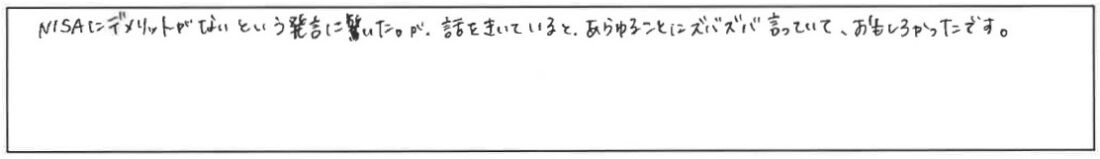 NISAにデメリットがないという発言に驚いた。が、話をきいていると、あらゆることにズバズバ言っていて、おもしろかったです。